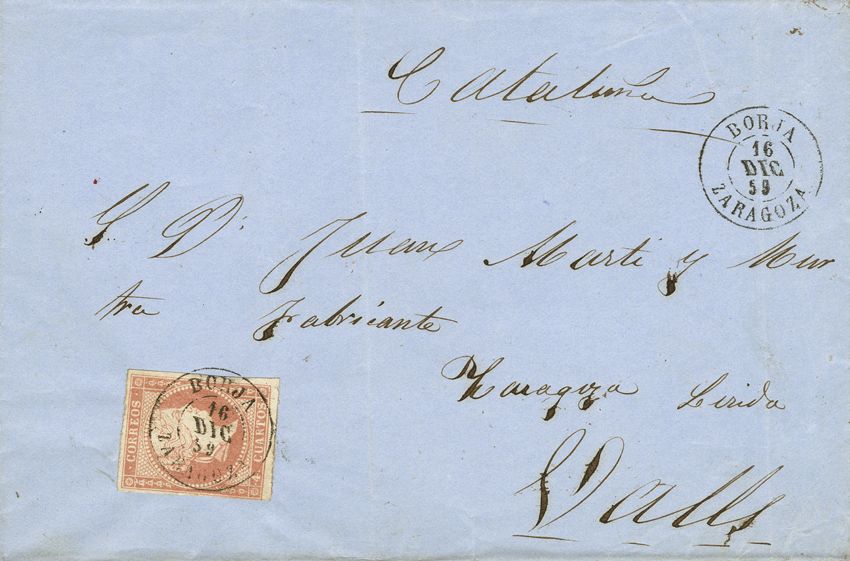 Cataluña
BORJA
16
DIC
59
ZARAGOZA
S. D. Juan Marti y Mur
tra Fabricante
Zaragoza Lerida
Valls
CORREOS
4 CUARTOS
BORJA
16
DIC
59
ZARAGOZA